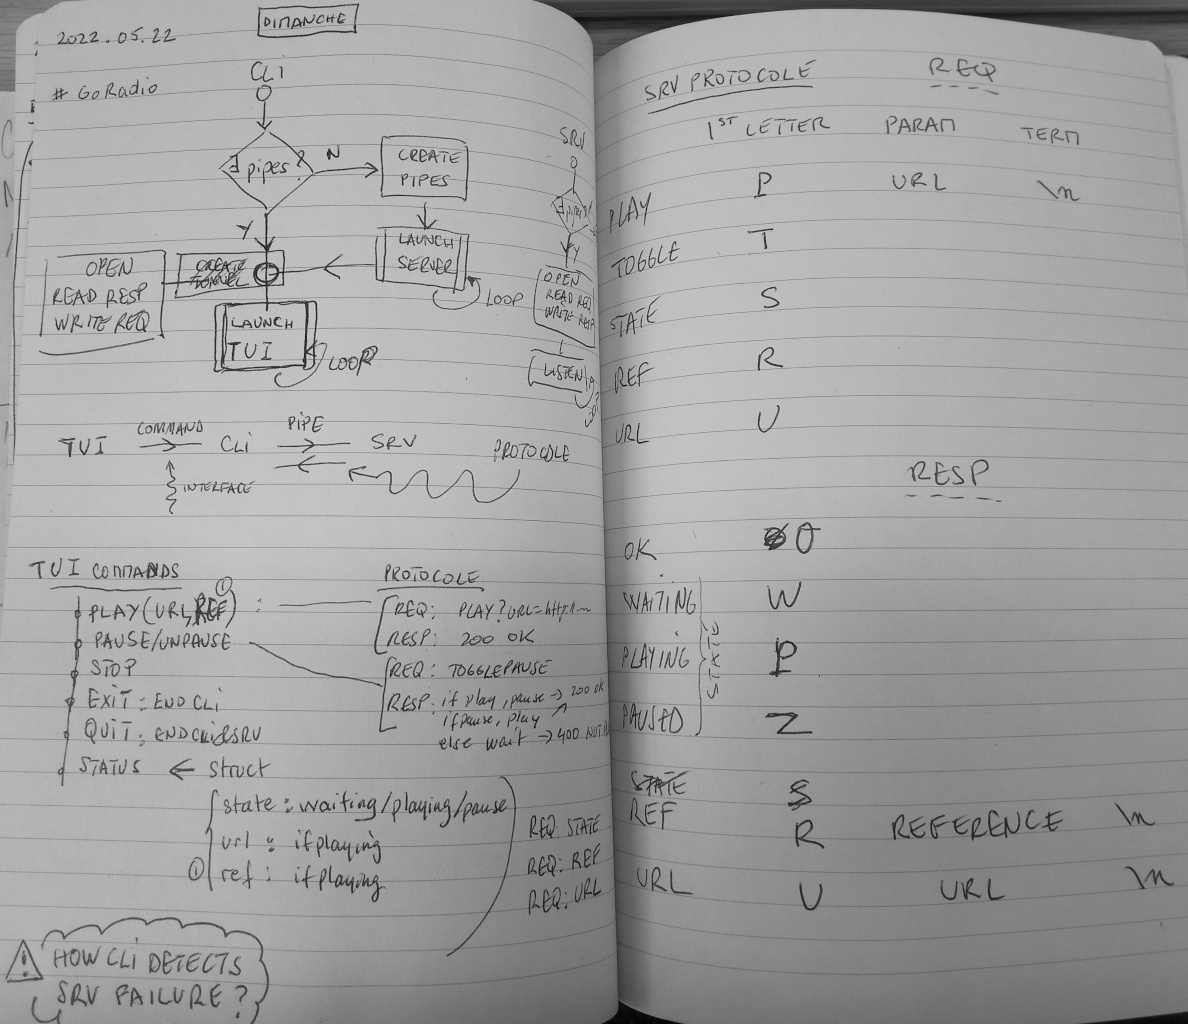 2022.05.22
DIMANCHE
# GoRadio
CLi
∃ pipes?
N
CREATE
PIPES
Y
LAUNCH
SERVER
LOOP
OPEN
READ RESP
WRITE REQ
CREATE
TUNNEL
LAUNCH
TUI
LOOP
SRV
∃ pipes?
Y
OPEN
READ REQ
WRITE RESP
LISTEN
TUI
COMMAND
CLi
PIPE
SRV
PROTOCOLE
INTERFACE
TUI COMMANDS
PLAY(URL,REF) :
①
PAUSE/UNPAUSE
STOP
EXIT : END CLi
QUIT : END CLi&SRV
STATUS ← struct
state : waiting/playing/pause
url : if playing
① ref : if playing
PROTOCOLE
REQ: PLAY?URL=http://...
RESP: 200 OK
REQ: TOGGLEPAUSE
RESP: if play, pause → 200 ok
if pause, play
else wait → 400
REQ STATE
REQ: REF
REQ: URL
⚠ HOW CLi DETECTS
SRV FAILURE ?
SRV PROTOCOLE
REQ
1ST LETTER PARAM TERM
PLAY P URL \n
TOGGLE T
STATE S
REF R
URL U
RESP
OK O
WAITING W
PLAYING P
PAUSED Z
STATE
STATE S
REF R REFERENCE \n
URL U URL \n